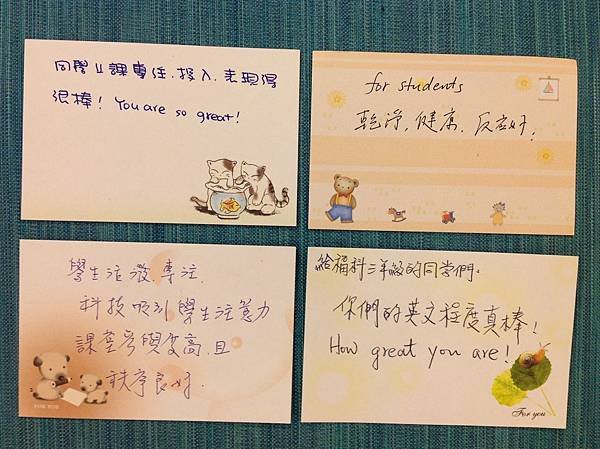 同學上課專注.投入.表現得
很棒! You are so great!
for students
乾淨,健康,反應好!
學生活潑.專注.
科技吸引學生注意力
課堂參與度高.且
秩序良好.
給福科三年級的同學們。
你們的英文程度真棒!
How great you are!
For you